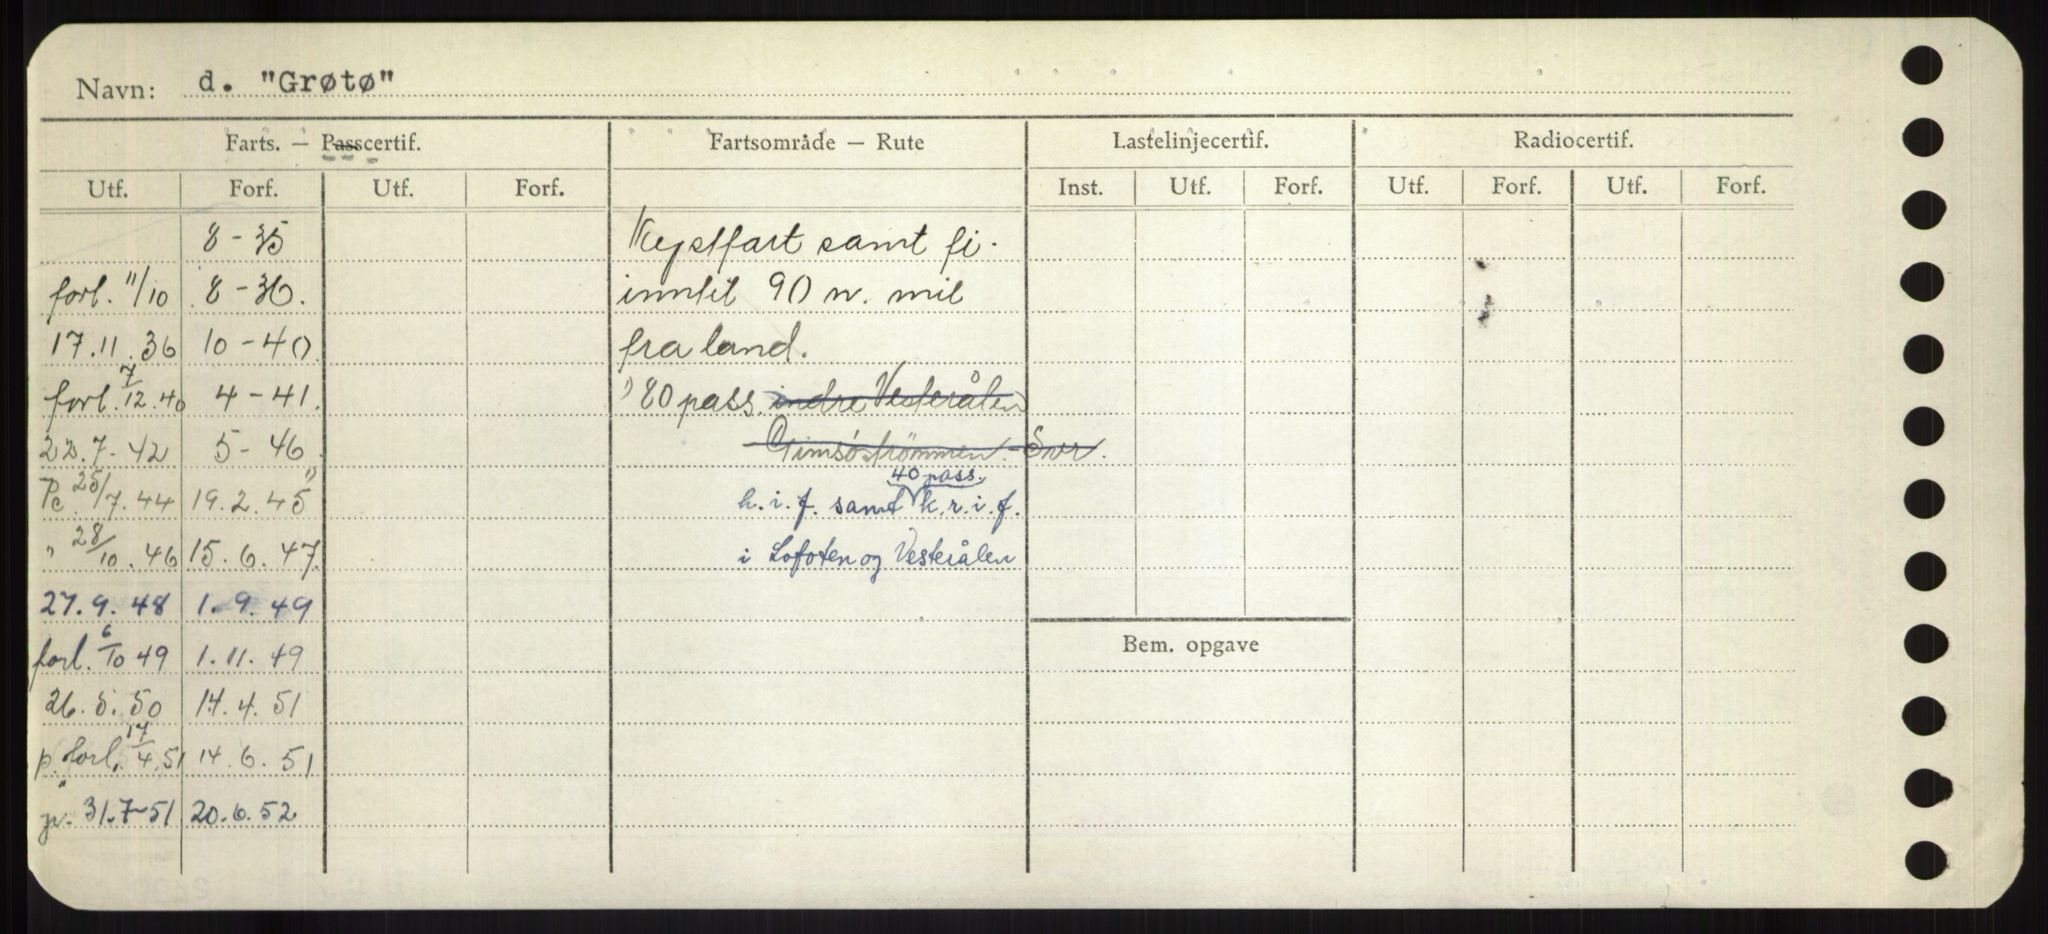 Navn: d. "Grøtø"
Farts. — Passcertif. Fartsområde — Rute Lastelinjecertif. Radiocertif.
Utf. Forf. Utf. Forf. Inst. Utf. Forf. Utf. Forf. Utf. Forf.
8 - 35 Kystfart samt fi.
forl. 11/10 8 - 36. inntil 90 n. mil
17.11.36 10 - 40. fra land.
forl. 7/12.40 4 - 41. " 80 pass. indre Vesterålen
22.7.42 5 - 46 Gimsöströmmen - Svr.
40 pass.
Pc 25/7.44 19.2.45 " h.i.f. samt k.r.i.f.
" 28/10.46 15.6.47. i Lofoten og Vesterålen
27.9.48 1.9.49
forl. 6/10 49 1.11.49
Bem. opgave
26.5.50 14.4.51
p. forl. 17/4.51 14.6.51
31.7-51 20.6.52